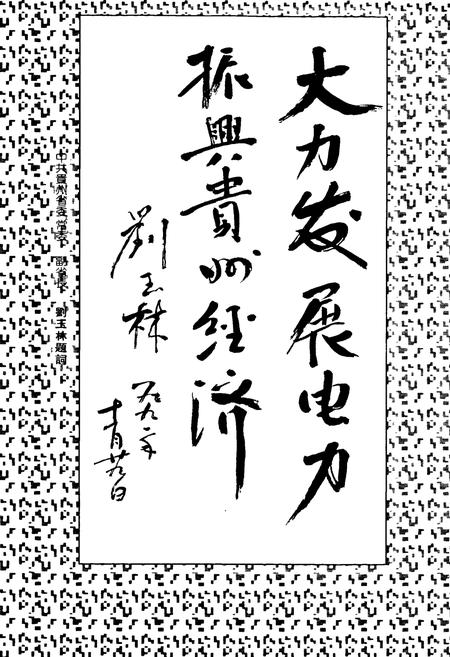 大力发展电力
振興貴州经济
劉玉林
一九九二年
十一月廿九日
中共贵州省委常委、副省長 劉玉林題詞